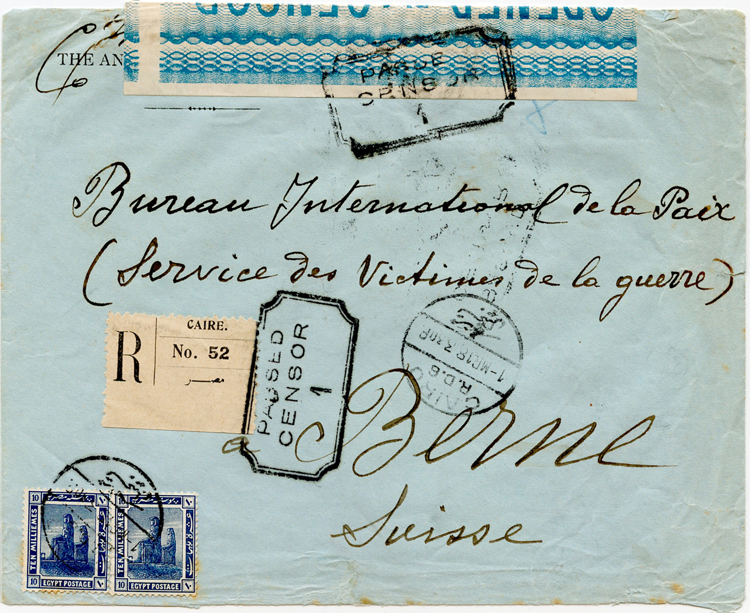 OPENED BY CENSOR
THE AN
PASSED
CENSOR
1
Bureau International de la Paix
(Service des Victimes de la guerre)
CAIRE.
R
No. 52
مصر
PASSED
CENSOR
1
CAIRO
R.D.6
à Berne
Suisse
10
١٠
TEN MILLIEMES
EGYPT POSTAGE
10
١٠
10
١٠
TEN MILLIEMES
EGYPT POSTAGE
10
١٠